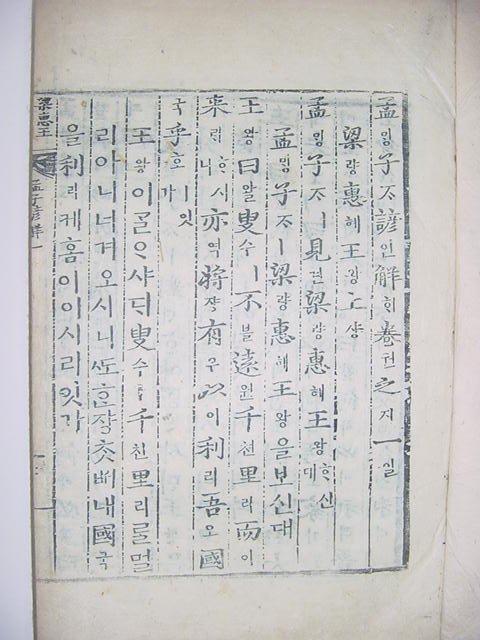 孟ᄆᆡᆼ子ᄌᆞ諺언解ᄒᆡ卷권之지一일
梁량惠혜王왕上샹
孟ᄆᆡᆼ子ᄌᆞㅣ見견梁량惠혜王왕ᄒᆞ신대
孟ᄆᆡᆼ子ᄌᆞㅣ梁량惠혜王왕을보신대
王왕曰왈叟수ㅣ不블遠원千쳔里리而이
來ᄅᆡᄒᆞ시니亦역將쟝有유以이利리吾오國
국乎호ㅣ잇가
王왕이ᄀᆞᆯᄋᆞ샤ᄃᆡ叟수ㅣ千쳔里리ᄅᆞᆯ멀
리아니너겨오시니ᄯᅩᄒᆞᆫ쟝ᄎᆞᆺᄡᅥ내國국
을利리케홈이이시리잇가
梁惠王 孟子諺解一